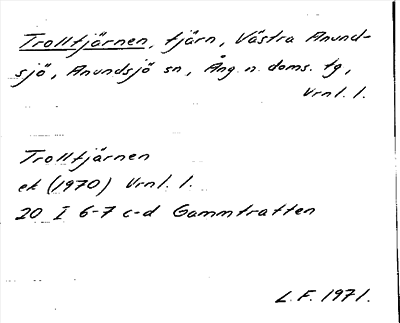 Trolltjärnen, tjärn, Västra Anund-
sjö, Anundsjö sn, Ång. n. doms. tg,
Vrnl. l.
Trolltjärnen
ek (1970) Vrnl. l.
20 I 6-7 c-d Gammtratten
L.F. 1971.